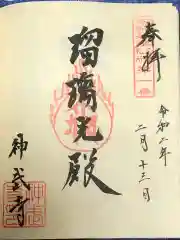 奉拝
令和二年
二月十三日
瑠璃光殿
神武寺